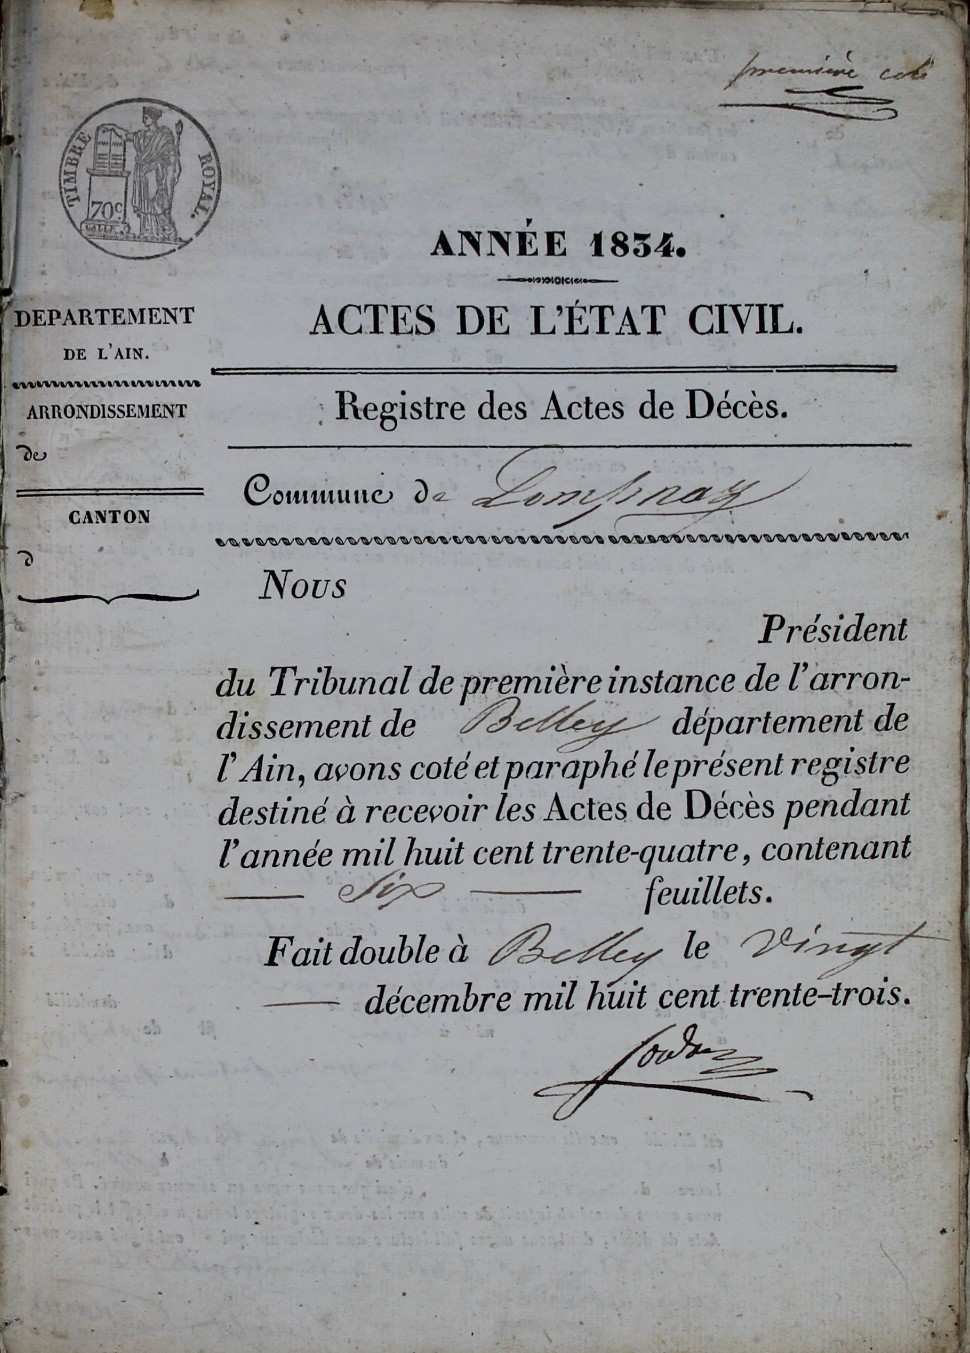 première
TIMBRE ROYAL.
70c
ANNÉE 1834.
ACTES DE L'ÉTAT CIVIL.
DEPARTEMENT
DE L'AIN.
ARRONDISSEMENT
de
CANTON
d
Registre des Actes de Décès.
Commune de Lompnay
Nous
Président
du Tribunal de première instance de l'arron-
dissement de Belley département de
l'Ain, avons coté et paraphé le présent registre
destiné à recevoir les Actes de Décès pendant
l'année mil huit cent trente-quatre, contenant
six feuillets.
Fait double à Belley le vingt
décembre mil huit cent trente-trois.